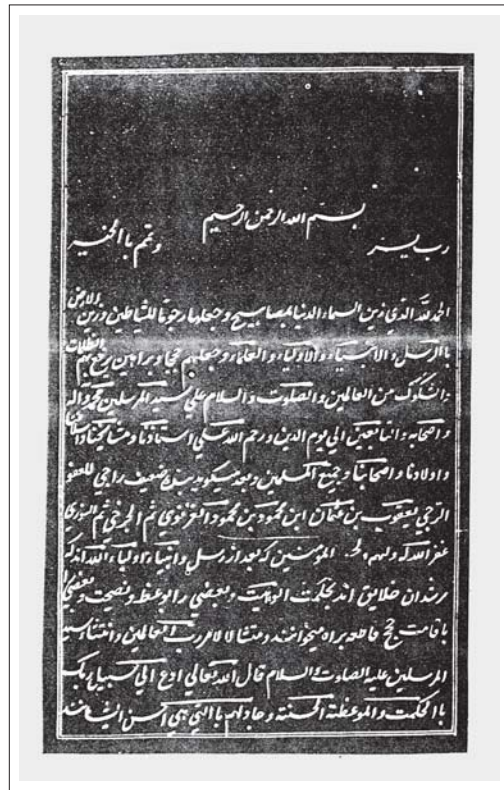 بسم الله الرحمن الرحيم
رب يسر وتمم بالخير
الحمد لله الذي زين السماء الدنيا بمصابيح وجعلها رجوما للشياطين وزين الارض
بالرسل والانبياء والاولياء والعلماء وجعلهم حججا وبراهين يرفع بهم الظلمات
والشكوك من العالمين والصلوت والسلام علي سيد المرسلين محمد واله
واصحابه والتابعين الي يوم الدين ورحم الله علي استاذنا ومشايخنا واسلافنا
واولادنا واصحابنا وجميع المسلمين وبعد ميكويد بنده ضعيف راجي للعفو
الرجي يعقوب بن عثمان ابن محمود بن محمود الغزنوي ثم الجرخي ثم السرزي
غفر الله له ولهم ولجميع المؤمنين كه بعد از رسل وانبياء اولياء الله اند كه
مرشدان خلايق اند بحكمت الوهيت وبعضي را بوعظ ونصيحت وبعضي را
باقامت حجج قاطعه براه ميخوانند ومتثالا لامر رب العالمين واقتفاء سيد
المرسلين عليه الصلوت والسلام قال الله تعالي ادع الي سبيل ربك
باالحكمت والموعظة الحسنة وجادلهم باالتي هي احسن